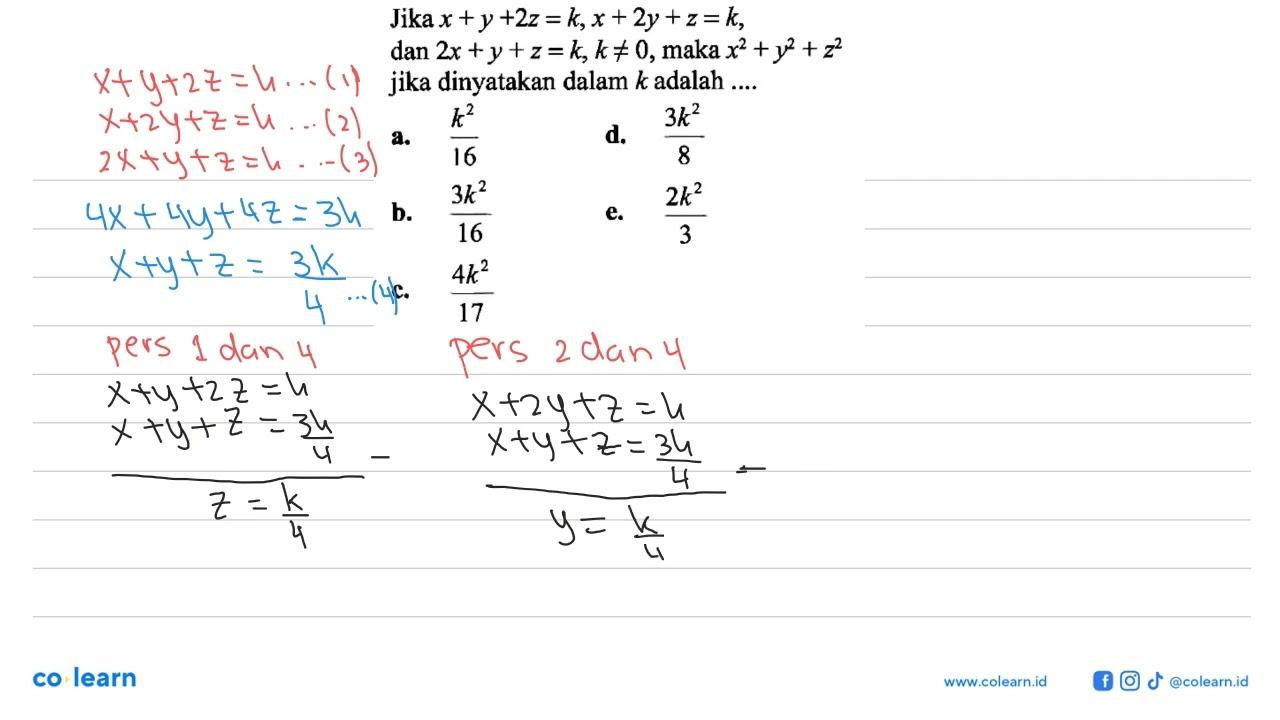 Jika x + y +2z = k, x + 2y + z = k,
dan 2x + y + z = k, k ≠ 0, maka x² + y² + z²
jika dinyatakan dalam k adalah ....
a. k²/16
d. 3k²/8
b. 3k²/16
e. 2k²/3
c. 4k²/17
x+y+2z=k...(1)
x+2y+z=k...(2)
2x+y+z=k...(3)
4x+4y+4z=3k
x+y+z= 3k/4 ...(4)
pers 1 dan 4
x+y+2z=k
x+y+z=3k/4 –
z = k/4
pers 2 dan 4
x+2y+z=k
x+y+z=3k/4 –
y = k/4
co learn
www.colearn.id
@colearn.id